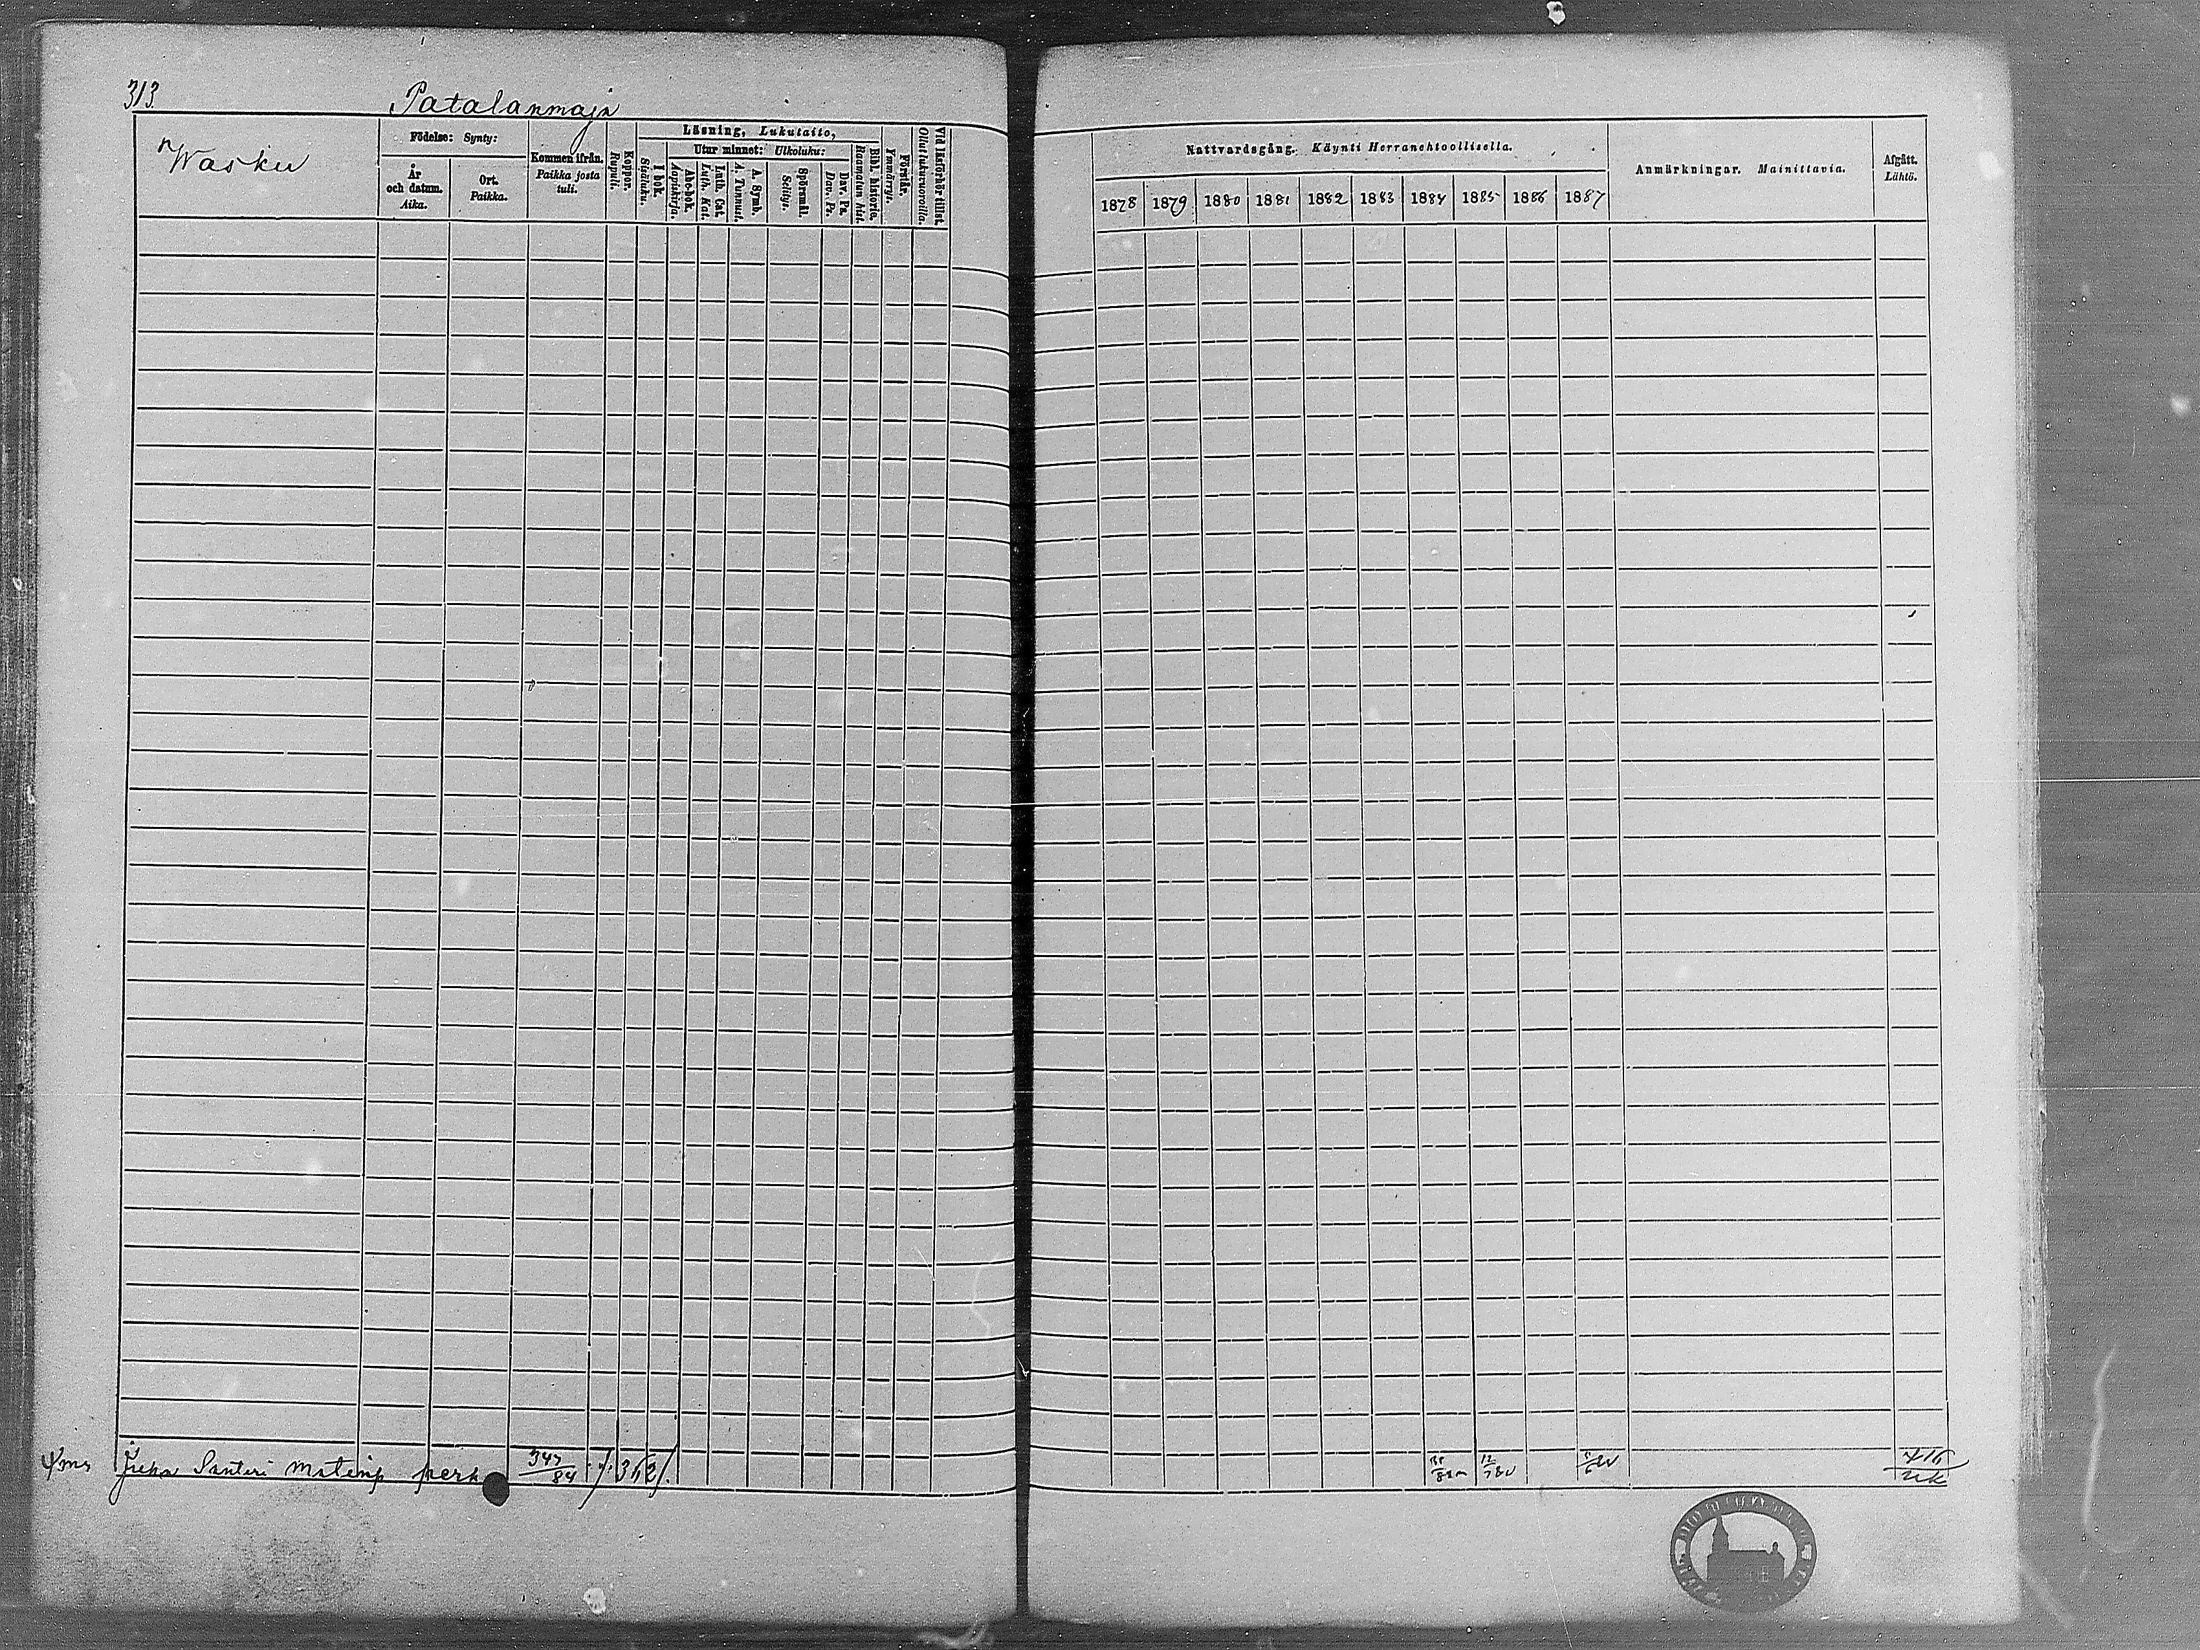 313.
Patalanmaja
Wasku
Födelse: Synty:
År och datum. Aika.
Ort. Paikka.
Kommen ifrån. Paikka josta tuli.
Koppor. Rupuli.
Läsning, Lukutaito,
I bok. Sisäluku.
Utur minnet: Ulkoluku:
Abc-bok. Aapiskirja.
Luth. Cat. Luth. Kat.
A. Symb. A. Tunnust.
Spörsmål. Selitys.
Dav. Ps. Dav. Ps.
Bibl. historia. Raamatun hist.
Förstår. Ymmärrys.
Vid läsförhör tillst. Ollut lukuvuoroilla.
Nattvardsgång. Käynti Herranehtoollisella.
1878 1879 1880 1881 1882 1883 1884 1885 1886 1887
Anmärkningar. Mainittavia.
Afgått. Lähtö.
Juha Santeri perh 347/84